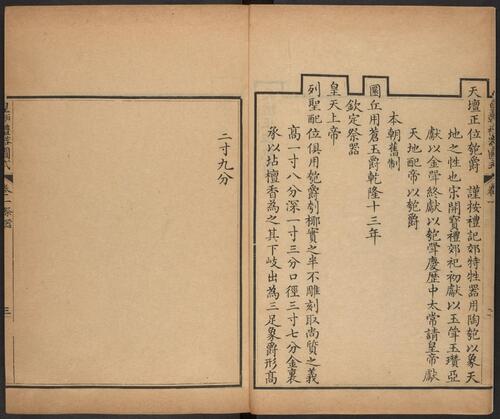 天壇正位匏爵 謹按禮記郊特牲器用陶匏以象天
地之性也宋開寶禮郊祀初獻以玉斝玉瓚亞
獻以金斝終獻以匏斝慶歷中太常請皇帝獻
天地配帝以匏爵
本朝舊制
圜丘用蒼玉爵乾隆十三年
欽定祭器
皇天上帝
列聖配位俱用匏爵刳椰實之半不雕刻取尚質之義
高一寸八分深一寸三分口徑三寸七分金裏
承以坫檀香為之其下歧出為三足象爵形高
二寸九分
皇朝禮器圖式 卷一祭器
三